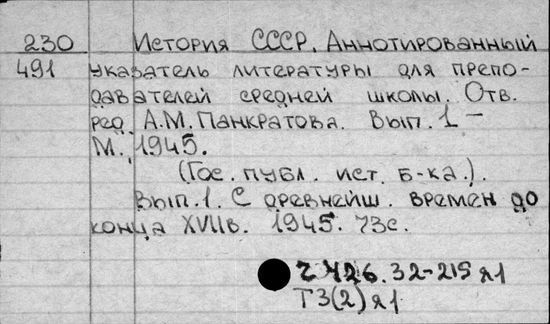 230 История СССР. Аннотированный
491 указатель литературы для препо-
давателей средней школы. Отв.
ред. А.М. Панкратова. Вып. 1 —
М., 1945.
(Гос. публ. ист. б-ка.).
Вып. 1. С древнейш. времен до
конца XVIIв. 1945. 73с.
426.32-215 я1
Т3(2) я1